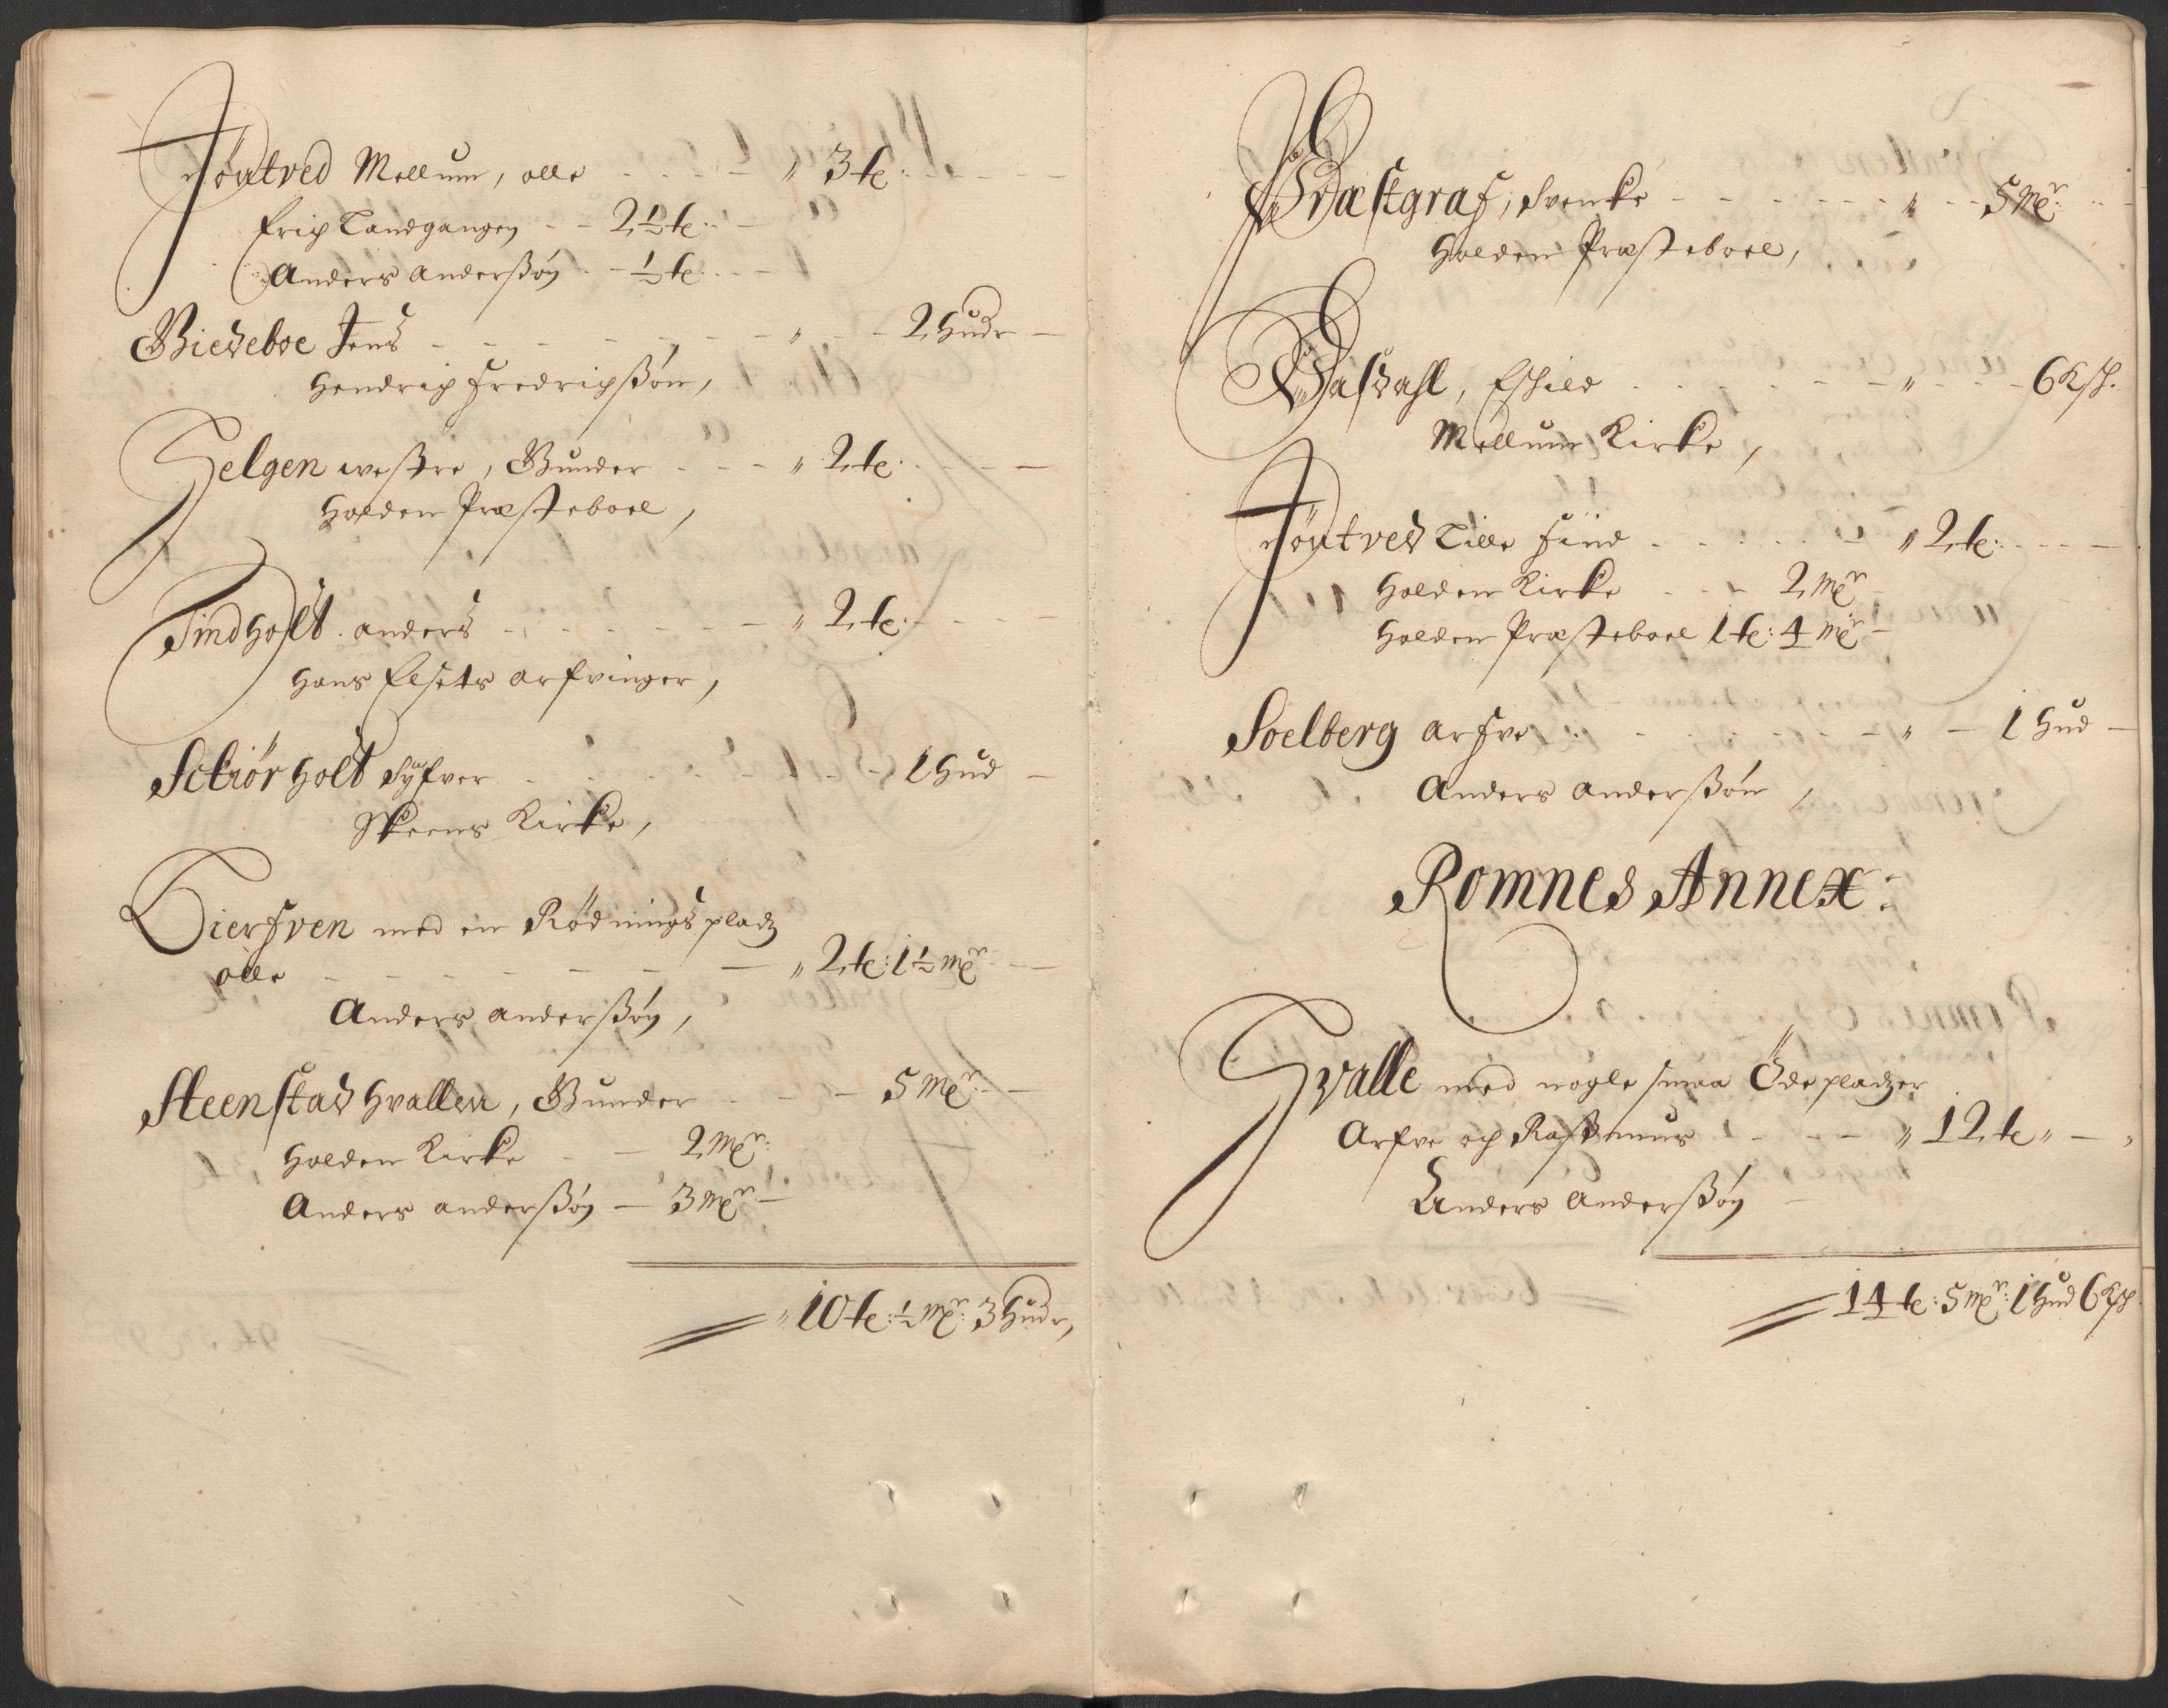 Jöntved Mellum, olle - - - - " 3 te: - - -
Erich Landgangen - - 2½ te: -
Anders Anderßøn - - ½ te - - -
Bieseboe Jens - - - - - - " - - 2 Hudr -
Hendrich Fredrichßøn,
Helgen westre, Gunder - - - " 2 te: - - -
Holden Præsteboel,
Tindholt anders - - - - - - " 2 te: - - -
Hans Elsets arfvinger,
Schiör holt Syfver - - - - - - - 1 Hud -
Skeens Kirke,
Dierfven med en Rødnings pladz
olle - - - - - - - " 2 te: 1½ mꝶr -
Anders anderßøn,
Steenstad Hvallen, Gunder - - - 5 mꝶr: -
Holden Kirke - - 2 mꝶr:
Anders anderßøn - 3 mꝶr: -
" 10 te: ½ mꝶr: 3 Hudr,
Præstgraf, Svenke - - - - - " - - 5 mꝶr: -
Holden Præsteboel,
Dahl, Eschild - - - - - " - - - 6 Ksh.
Mellum Kirke,
Jöntved Lille Find - - - - - " 2 te: - - -
Holden Kirke - - - 2 mꝶr
Holden Præsteboel 1 te: 4 mꝶr -
Soelberg arfve - - - - - - " - 1 Hud -
Anders anderßøn,
Romnes Annex:
Hvalle med nogle smaa Öde pladzer
Arfve och Rasmus - - - " 12 te " - "
Anders Anderßøn -
14 te: 5 mꝶr: 1 Hud 6 Ksh